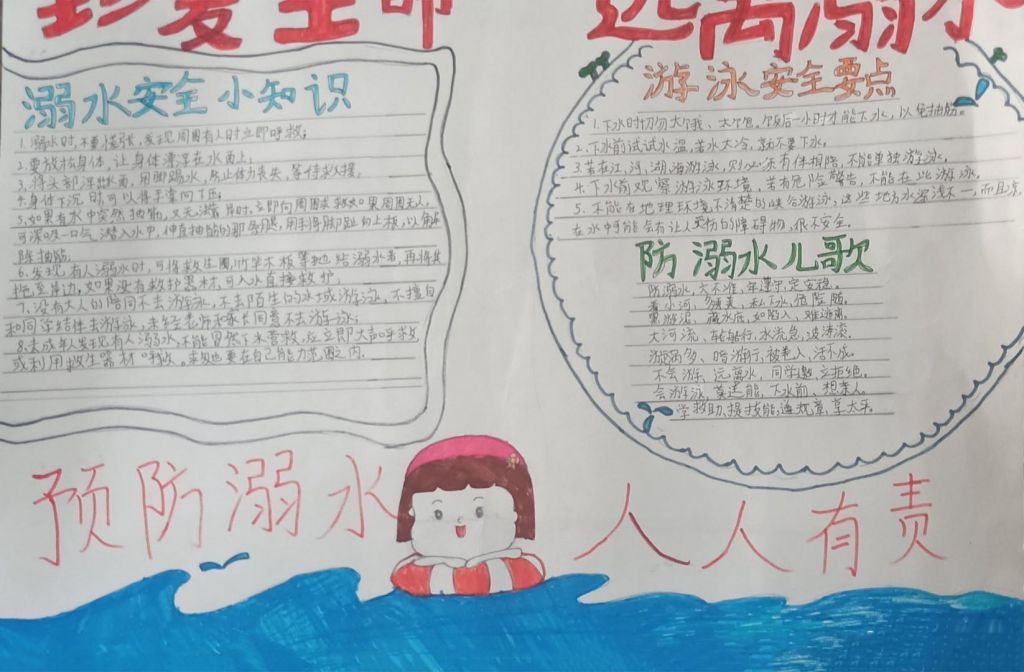 珍爱生命 远离溺水
溺水安全小知识
1.溺水时,不要慌张,发现周围有人时立即呼救;
2.要放松身体,让身体漂浮在水面上;
3.将头部浮出水面,用脚踢水,防止体力丧失,等待救援
4.身体下沉时,可以将手掌向下压;
5.如果在水中突然抽筋,又无法靠岸时,立即向周围求救如果周围无人,
可深吸一口气潜入水中,伸直抽筋的那条腿,用手将脚趾向上扳,以解
除抽筋;
6.发现有人溺水时,可将救生圈,竹竿木板等抛给溺水者,再将其
拖至岸边,如果没有救护器材,可入水直接救护;
7.没有大人的陪同不去游泳,不去陌生的水域游泳,不擅自
和同学结伴去游泳,未经老师和家长同意不去游泳;
8.未成年人发现有人溺水,不能冒然下水营救,应立即大声呼救
或利用救生器材呼救。救也要在自己能力范围之内.
游泳安全要点
1.下水时切勿太饿、太饱,饭后一小时才能下水,以免抽筋。
2.下水前试试水温,若水太冷,就不要下水。
3.若在江,河,湖,海游泳,则必须有伴相陪,不能单独游泳。
4.下水前观察游泳环境,若有危险警告,不能在此游泳。
5.不能在地理环境不清楚的峡谷游泳,这些地方水深浅不一,而且凉,
在水中可能会有让人受伤的障碍物,很不安全.
防溺水儿歌
防溺水,大不准,牢遵守,定安稳。
大河流、转转行,水流急,波涛滚.
漩涡多、暗潮行,被卷人,活不成.
不会游、远离水,同学邀,立拒绝.
会游泳,莫逞能,下水前,想亲人.
学救助,提技能,遵规章,享太平.
预防溺水 人人有责